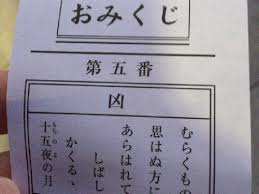 おみくじ
第五番
凶
むらくもの
思はぬ方に
あらはれて
しばし
かくるゝ
十五夜の月
もちのよ